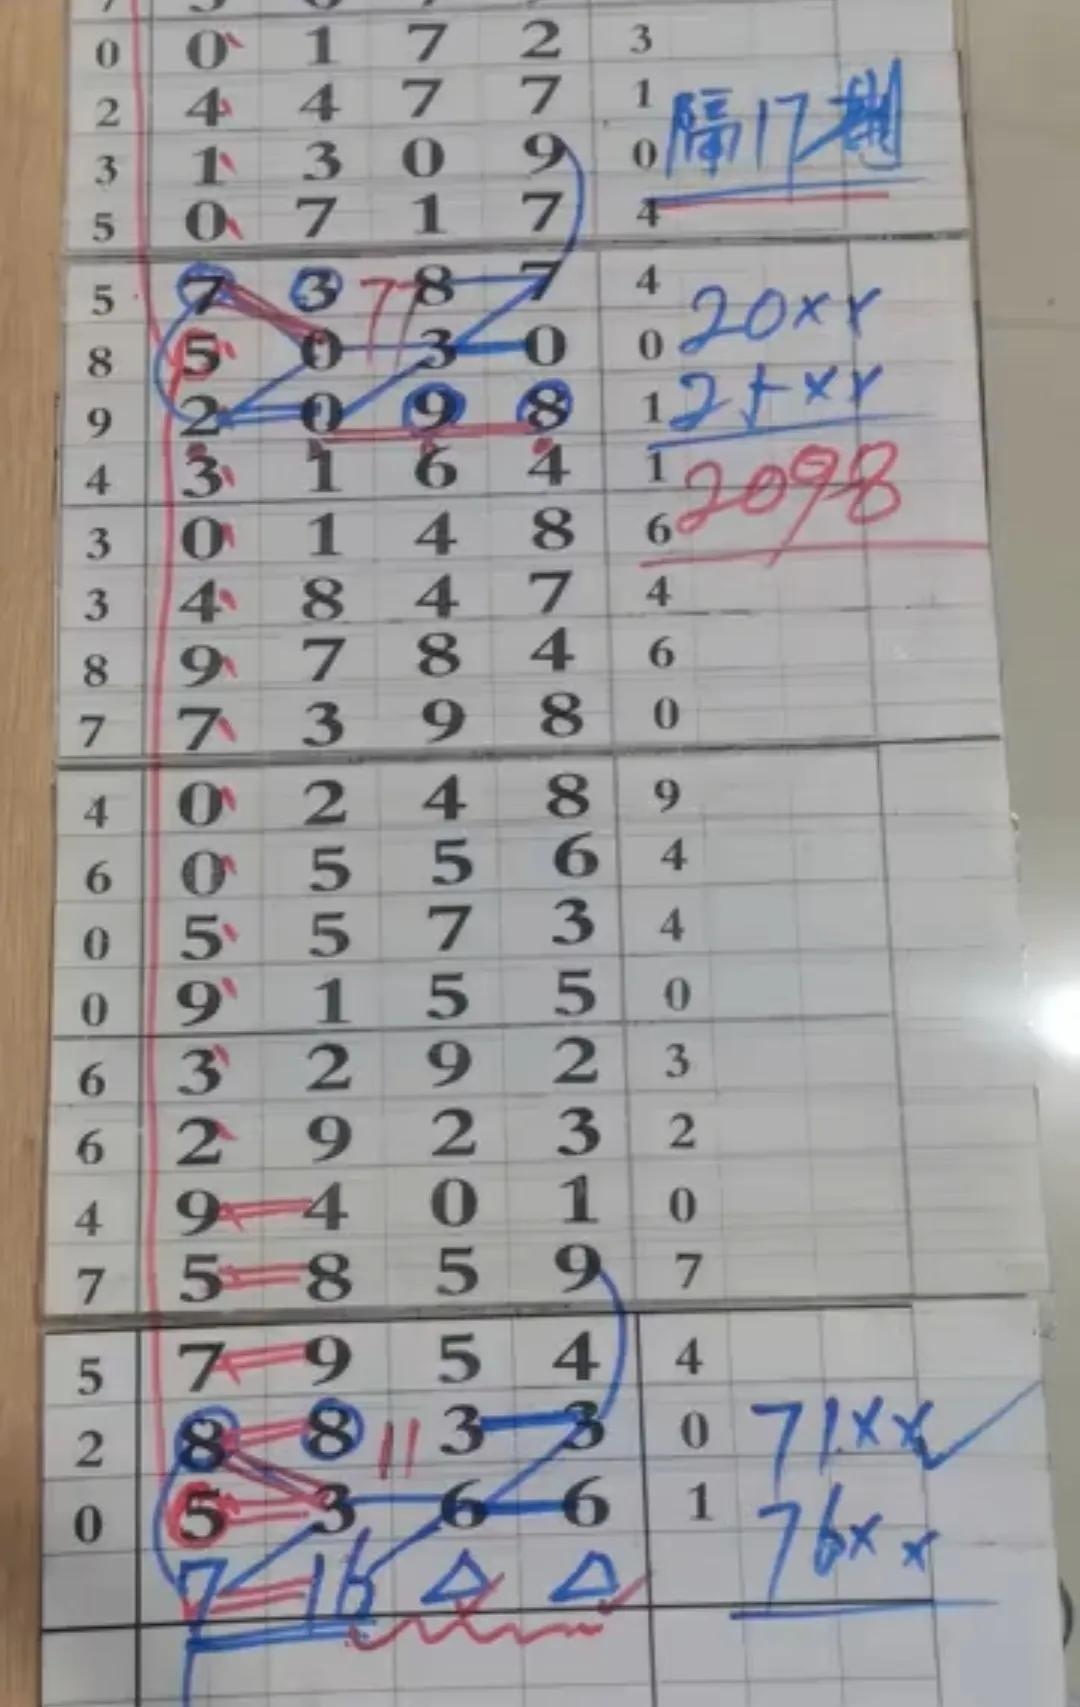 0 0 1 7 2 3
2 4 4 7 7 1
3 1 3 0 9 0 隔17期
5 0 7 1 7 4
5 7 3 77 8 7 4 20xx
8 5 0 3 0 0
9 2 0 9 8 1 25xx
4 3 1 6 4 1 2098
3 0 1 4 8 6
3 4 8 4 7 4
8 9 7 8 4 6
7 7 3 9 8 0
4 0 2 4 8 9
6 0 5 5 6 4
0 5 5 7 3 4
0 9 1 5 5 0
6 3 2 9 2 3
6 2 9 2 3 2
4 9 4 0 1 0
7 5 8 5 9 7
5 7 9 5 4 4
2 8 8 11 3 3 0 71xx
0 5 3 6 6 1 76xx
7 16 △ △